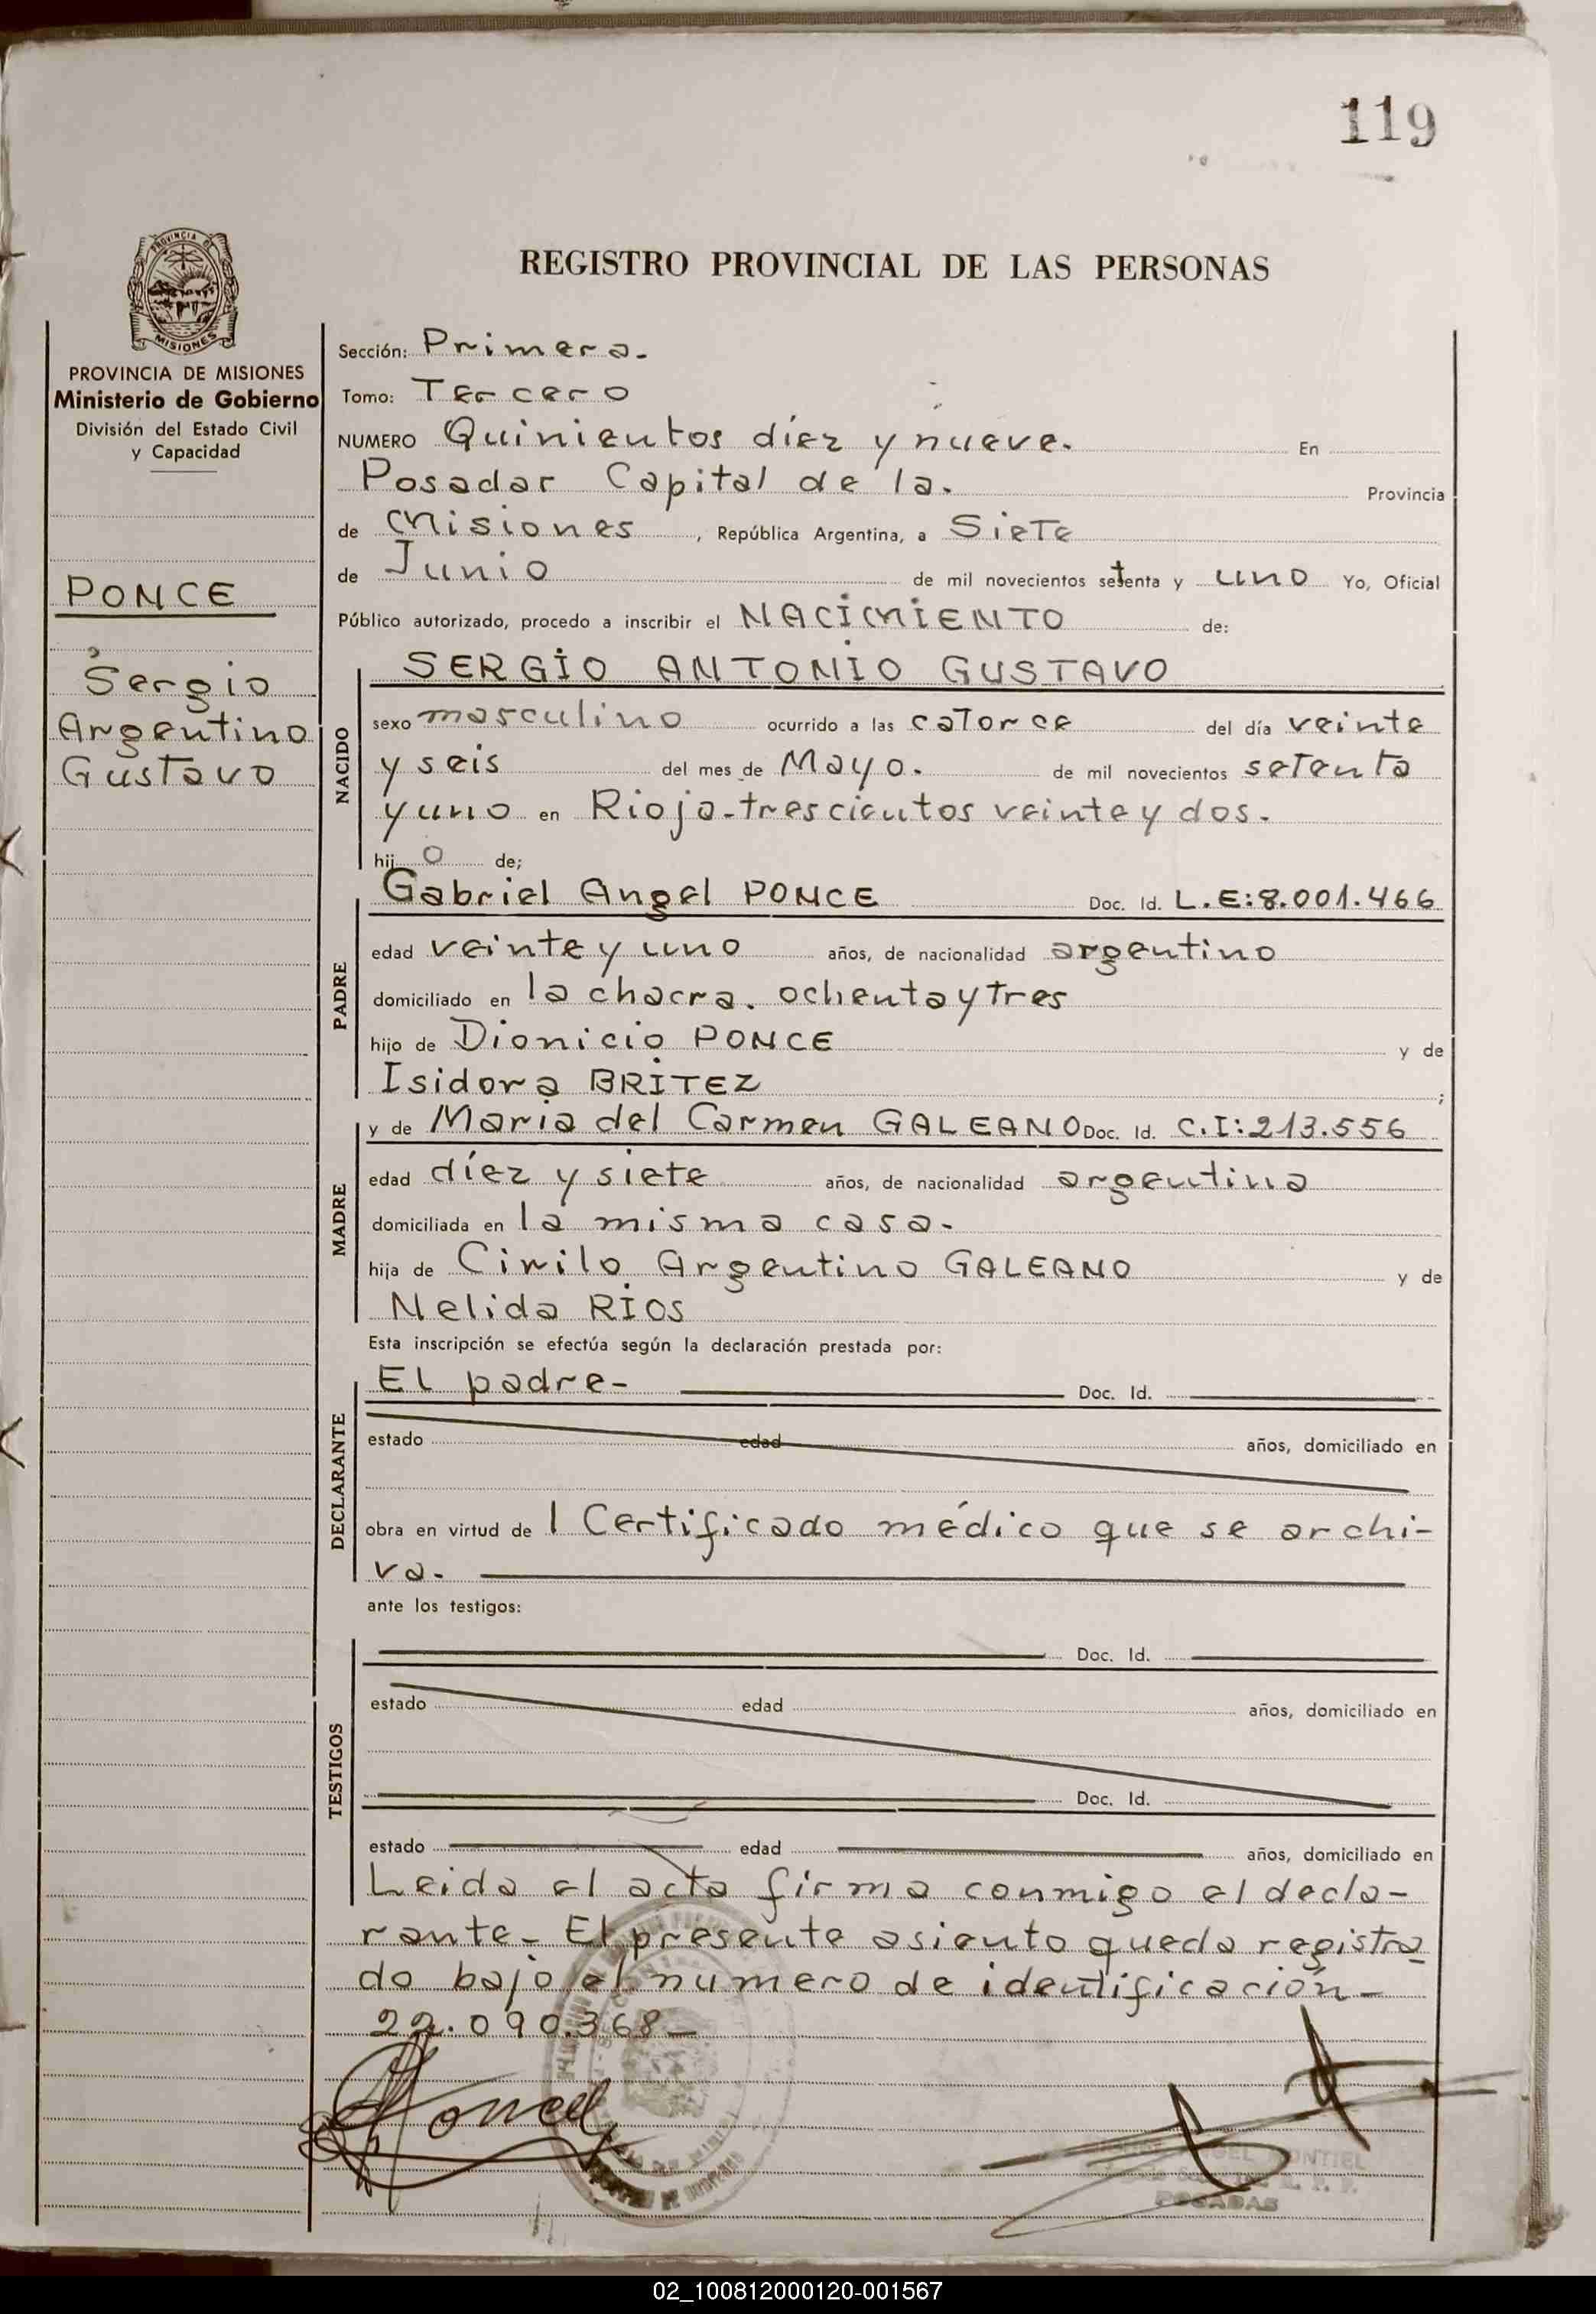 119
PROVINCIA DE
MISIONES
PROVINCIA DE MISIONES
Ministerio de Gobierno
División del Estado Civil
y Capacidad
PONCE
Sergio
Argentino
Gustavo
REGISTRO PROVINCIAL DE LAS PERSONAS
Sección: Primera.
Tomo: Tercero
NUMERO Quinientos díez y nueve. En
Posadas Capital de la. Provincia
de Misiones, República Argentina, a Siete
de Junio de mil novecientos setenta y uno Yo, Oficial
Público autorizado, procedo a inscribir el NACIMIENTO de:
SERGIO ANTONIO GUSTAVO
NACIDO
sexo masculino ocurrido a las catorce del día veinte
y seis del mes de Mayo. de mil novecientos setenta
y uno en Rioja-trescientos veinte y dos.
hij o de;
PADRE
Gabriel Angel PONCE Doc. Id. L.E:8.001.466
edad veinte y uno años, de nacionalidad argentino
domiciliado en la chacra. ochenta y tres
hijo de Dionicio PONCE y de
Isidora BRITEZ ;
MADRE
y de Maria del Carmen GALEANO Doc. Id. C.I:213.556
edad díez y siete años, de nacionalidad argentina
domiciliada en la misma casa.
hija de Cirilo Argentino GALEANO y de
Nelida RIOS
Esta inscripción se efectúa según la declaración prestada por:
DECLARANTE
El padre- Doc. Id.
estado edad años, domiciliado en
obra en virtud de l Certificado médico que se archi-
va.
ante los testigos:
TESTIGOS
Doc. Id.
estado edad años, domiciliado en
Doc. Id.
estado edad años, domiciliado en
Leida el acta firma conmigo el decla-
rante- El presente asiento queda registra
do bajo el numero de identificación-
22.090.368-
POSADAS
02_100812000120-001567